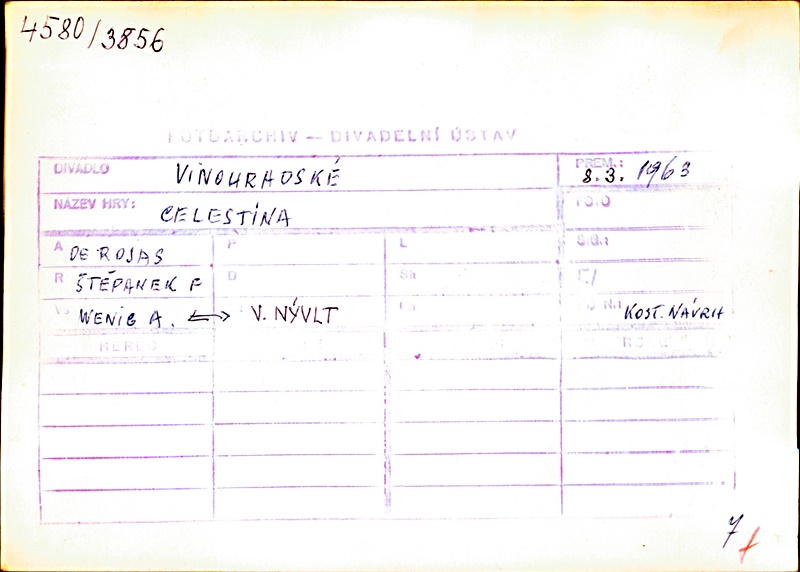 4580/3856
FOTOARCHIV — DIVADELNÍ ÚSTAV
DIVADLO VINOHRADSKÉ PREM.: 8.3. 1963
NÁZEV HRY: CELESTINA
A DE ROJAS P L
R ŠTĚPANEK F D Sh
WENIG A. ↔ V. NÝVLT KOST. NÁVRH
7